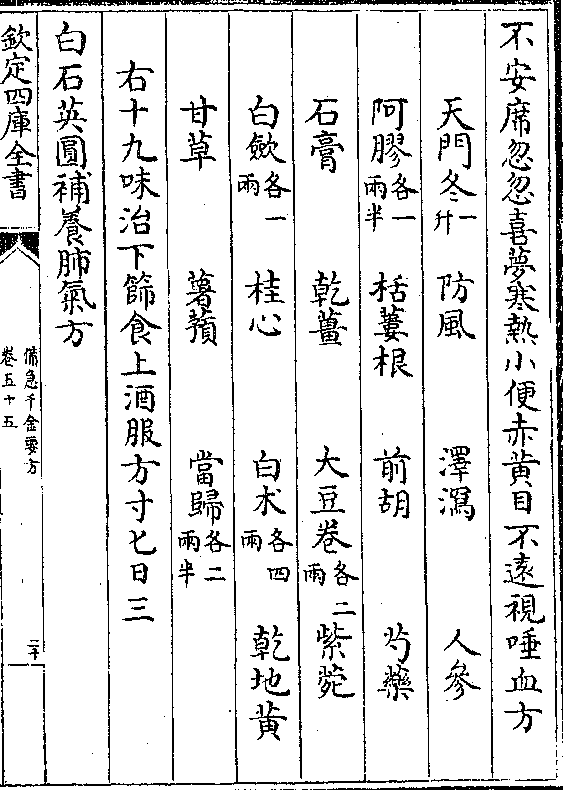 不安席忽忽喜夢寒熱小便赤黄目不遠視唾血方
天門冬一升 防風 澤瀉 人參
阿膠各一兩半 栝蔞根 前胡 芍藥
石膏 乾薑 大豆卷各二兩 紫菀
白蘞各一兩 桂心 白朮各四兩 乾地黄
甘草 薯蕷 當歸各二兩半
右十九味治下篩食上酒服方寸匕日三
白石英圓補養肺氣方
欽定四庫全書
備急千金要方
卷五十五
二十